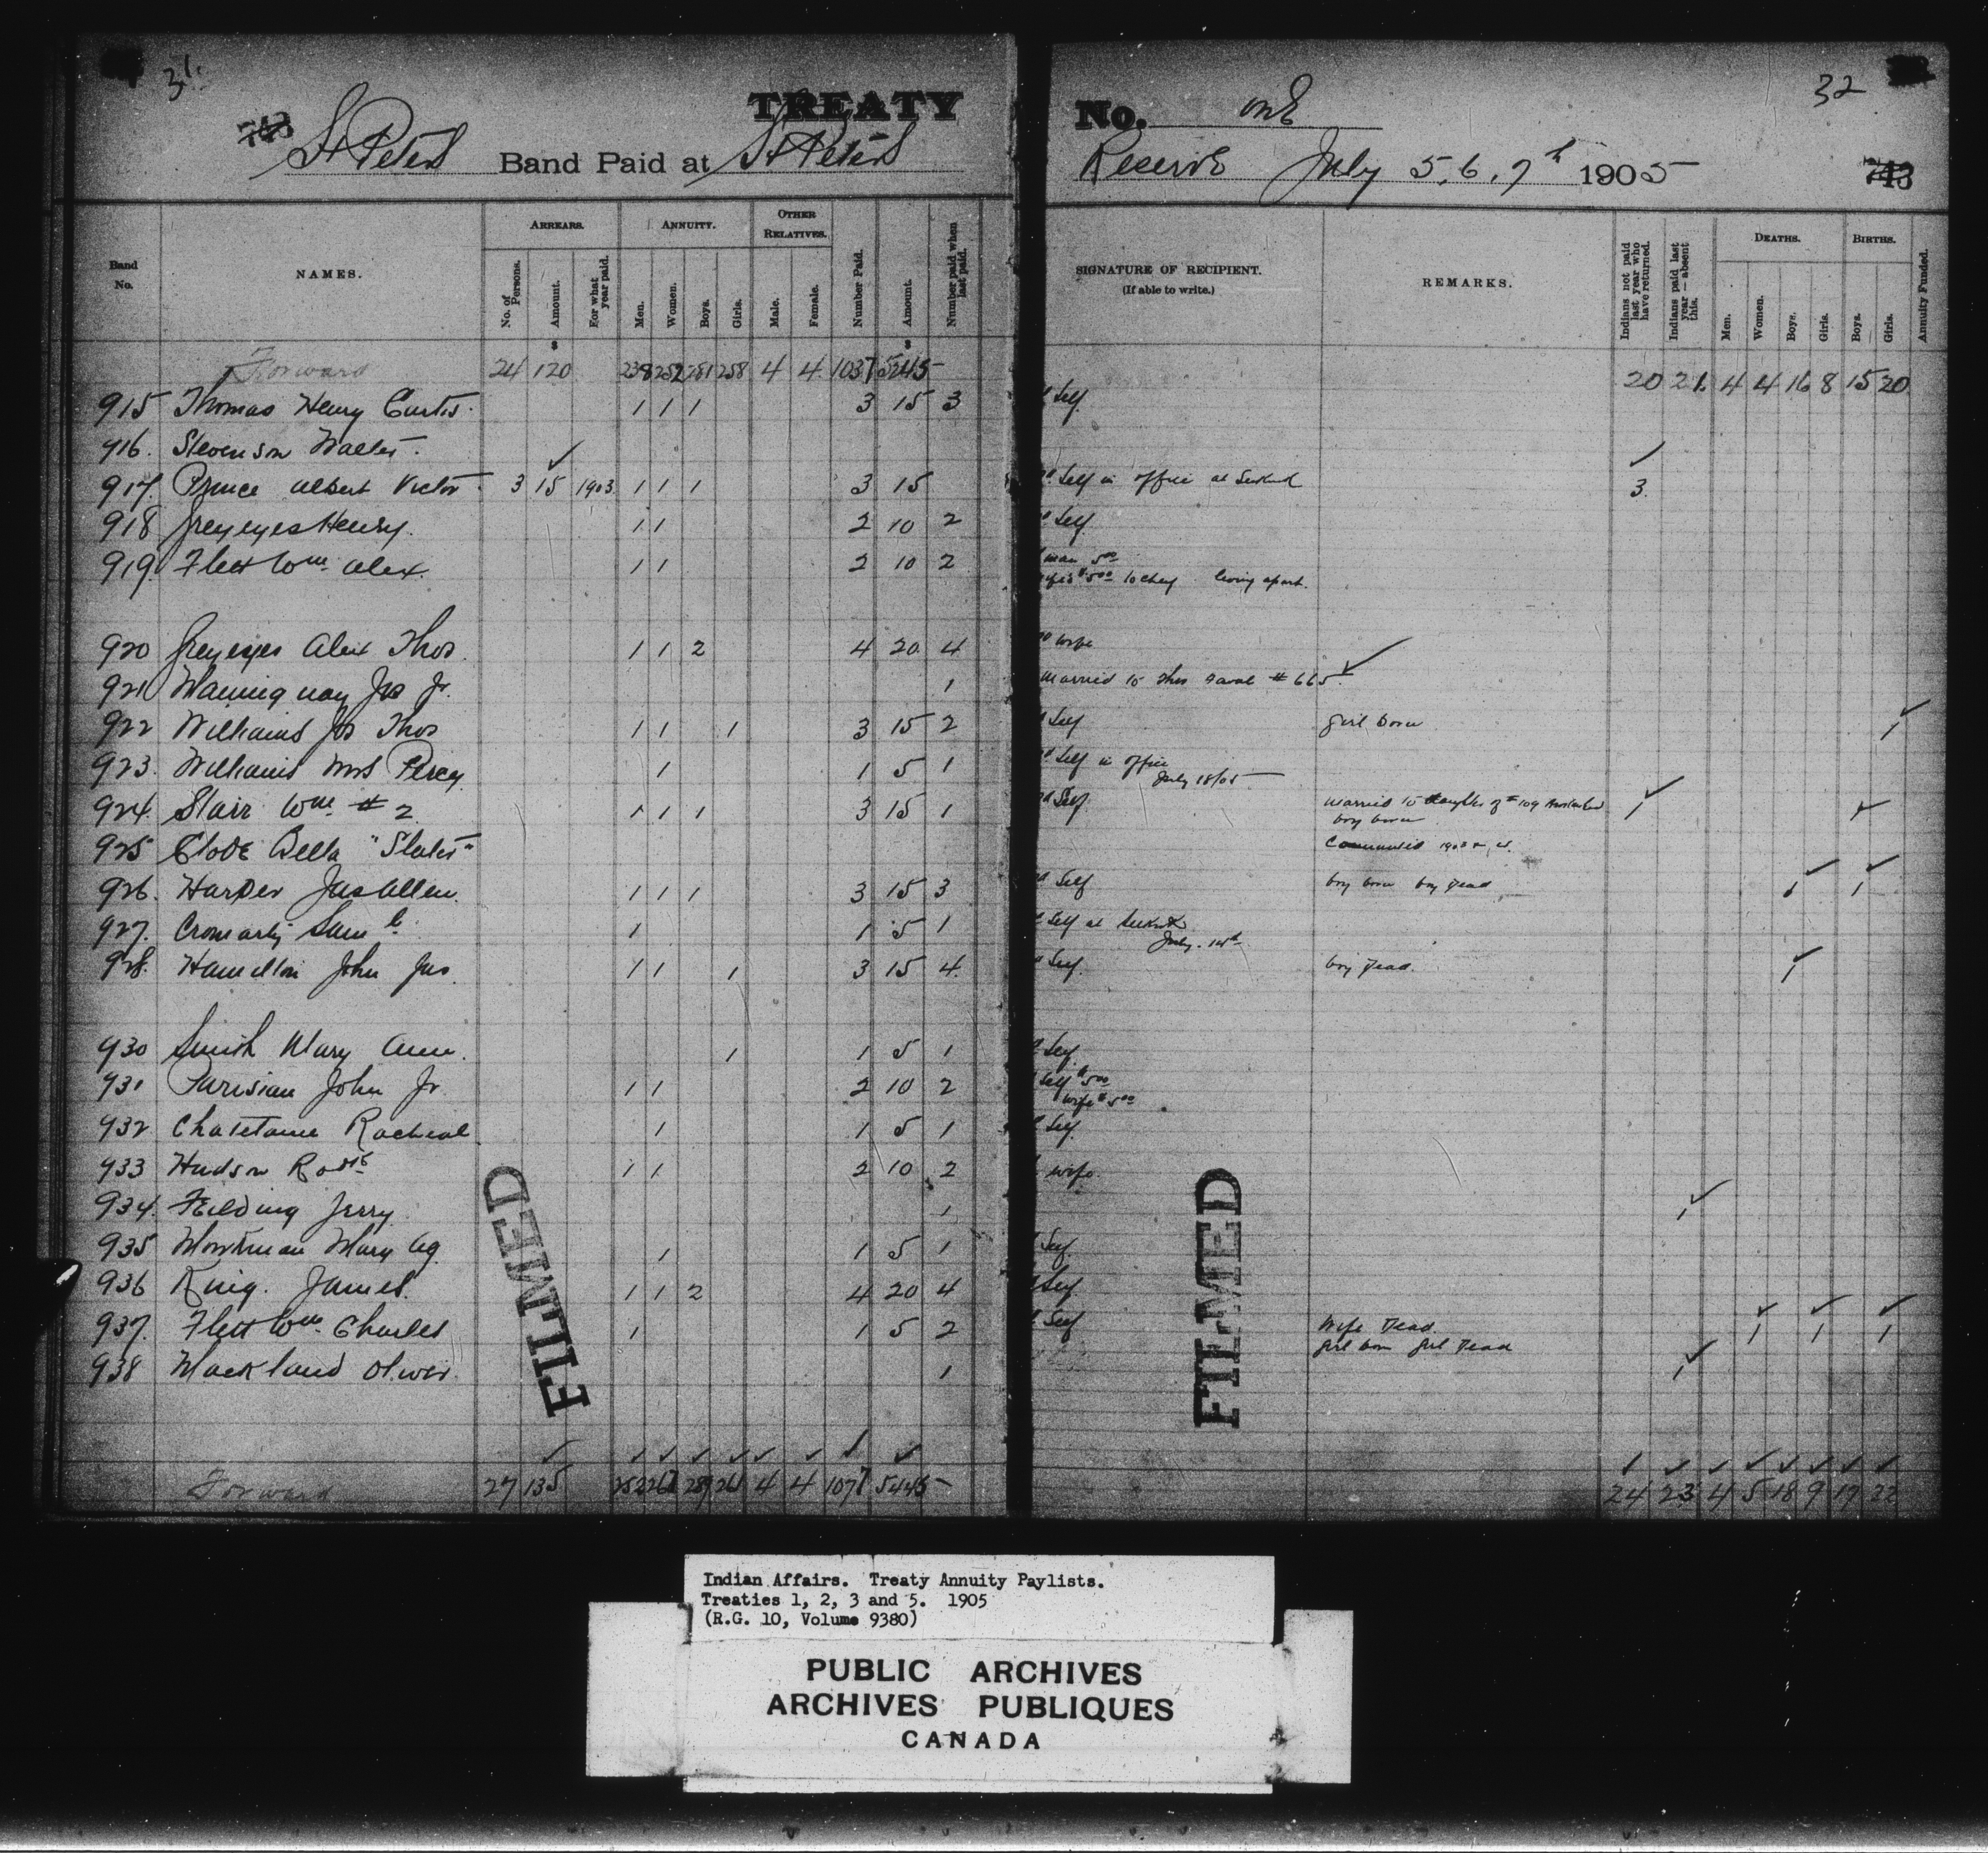 31.
TREATY
743
St Peters Band Paid at St Peters
Band No.
NAMES.
ARREARS.
No. of Persons.
Amount.
For what year paid.
ANNUITY.
Men.
Women.
Boys.
Girls.
OTHER RELATIVES.
Male.
Female.
Number Paid.
Amount.
Number paid when last paid.
$ $
Forward 24 120 238 252 281 258 4 4 1037 5245-
915 Thomas Henry Curtis. 1 1 1 3 15 3
916. Stevenson Walter.
917. Prince Albert Victor. 3 15 1903 1 1 1 3 15
918 Greyeyes Henry. 1 1 2 10 2
919. Flett Wm Alex. 1 1 2 10 2
920 Greyeyes Alex Thos. 1 1 2 4 20 4
921 Jr. 1
922 Williams Jos Thos 1 1 1 3 15 2
923. Williams Mrs Percy 1 1 5 1
924. Starr Wm # 2. 1 1 1 3 15 1
925 Bella "Slater"
926. Harper Jas Allen. 1 1 1 3 15 3
927. Cromarty Saml 1 1 5 1
928. Hamelton John Jas. 1 1 1 3 15 4.
930 Smith Mary Ann. 1 1 5 1
931 Parisian John Jr 1 1 2 10 2
932 Racheal 1 1 5 1
933 Hudson Robt 1 1 2 10 2
934. Feilding Jerry 1
935 Mary Ag 1 1 5 1
936 King. James. 1 1 2 4 20 4
937. Flett Wm Charles 1 1 5 2
938 Mackland Oliver. 1
FILMED
Forward 27 135 252 267 289 261 4 4 1077 5445-
32
No. One
Reserve July 5, 6, 7th 1905
743
SIGNATURE OF RECIPIENT.
(If able to write.)
REMARKS.
Indians not paid last year who have returned.
Indians paid last year — absent this.
DEATHS.
Men.
Women.
Boys.
Girls.
BIRTHS.
Boys.
Girls.
Annuity Funded.
20 21. 4 4 16 8 15 20
Self.
Self in office at Selkirk 3.
Self.
man 5.00
$5.00 to living apart.
wife
Married to Thos # 665.
Self girl born 1
Self in office
July 18/05
Self. married to daughter of # 109 1
boy born 1
1903
Self boy born boy dead 1 1
Self at Selkirk
July. 14th
Self. boy dead. 1
Self.
Self $5.00
wife $5.00
Self.
wife.
1
Self.
Self.
Self Wife dead. 1 1 1
girl born girl dead
1
FILMED
24 23 4 5 18 9 17 22
Indian Affairs. Treaty Annuity Paylists.
Treaties 1, 2, 3 and 5. 1905
(R.G. 10, Volume 9380)
PUBLIC ARCHIVES
ARCHIVES PUBLIQUES
CANADA